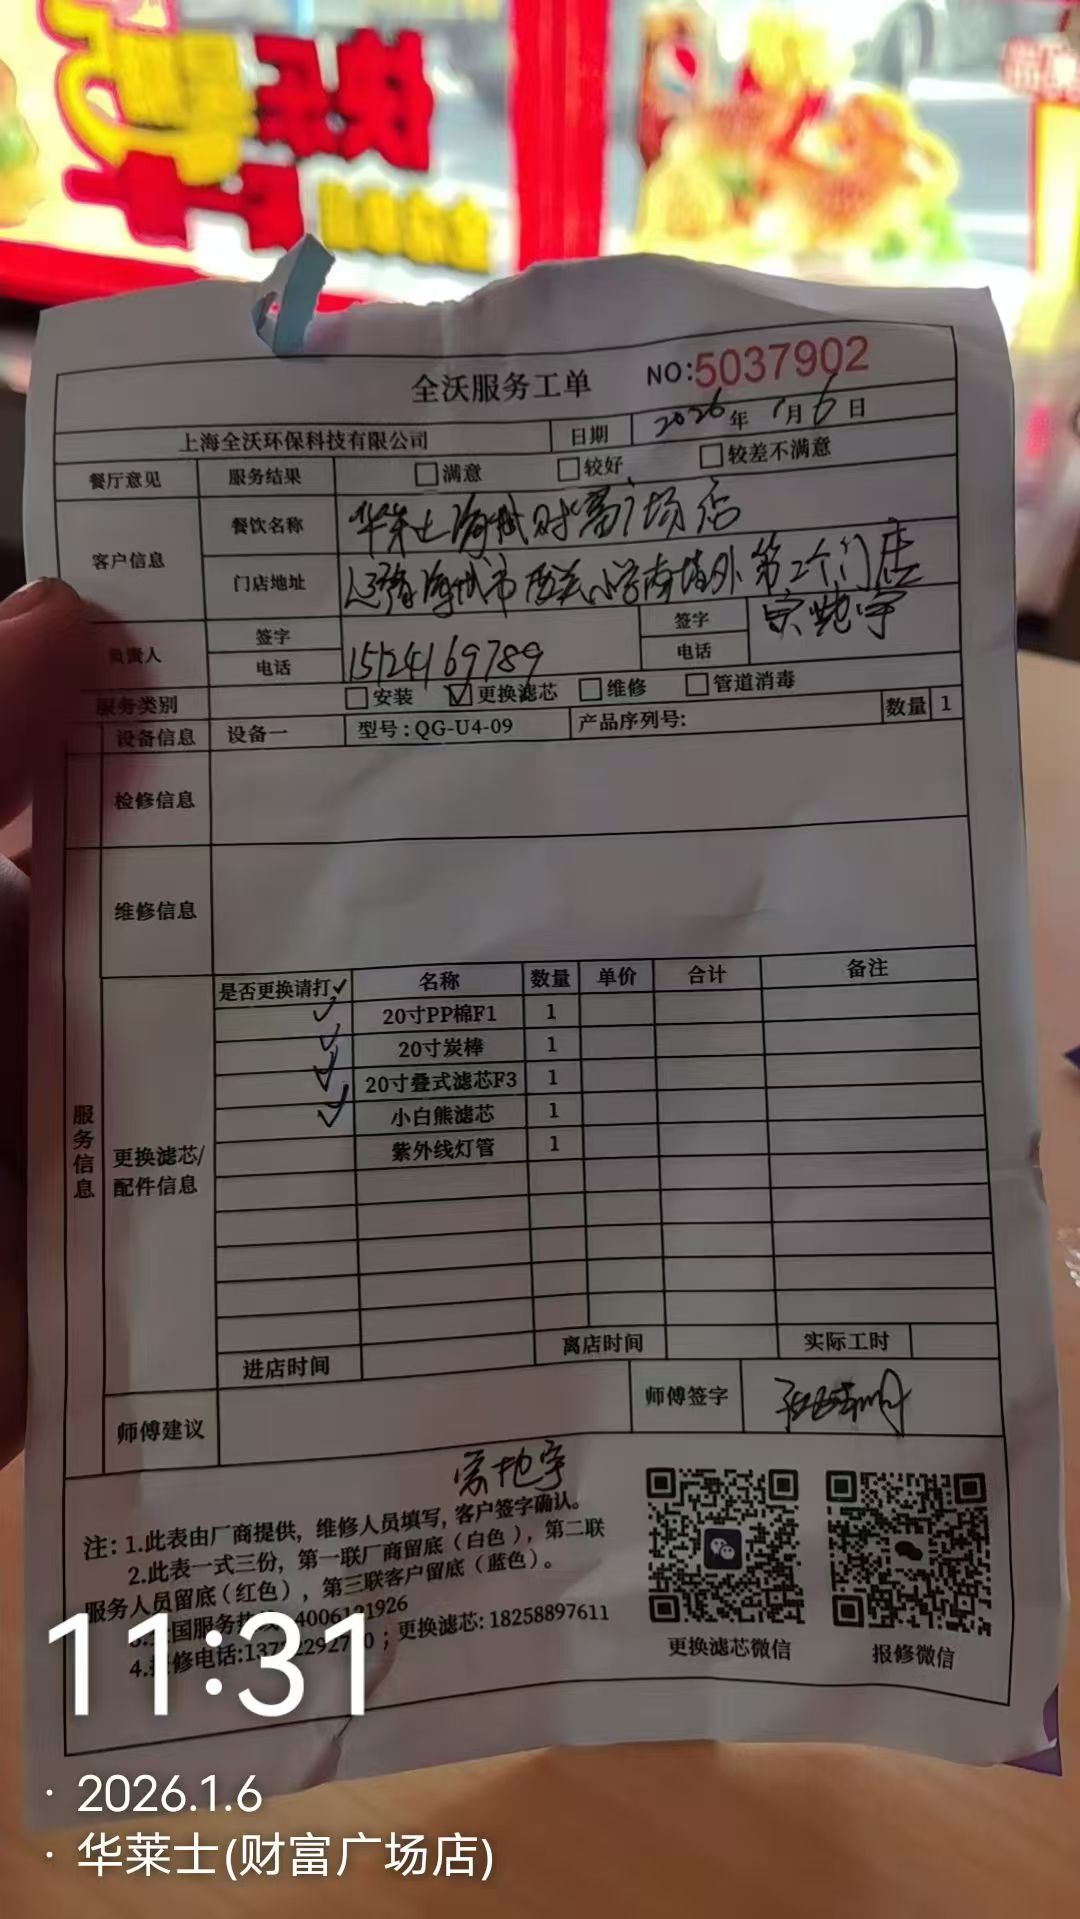 全沃服务工单 NO:5037902
上海全沃环保科技有限公司 日期 2026年1月6日
餐厅意见 服务结果 满意 较好 较差不满意
客户信息 餐饮名称 华莱士海城财富广场店
门店地址 辽宁海城市西关小学南墙外第2个门店
负责人 签字 签字
电话 15124169789 电话
服务类别 安装 ✓更换滤芯 维修 管道消毒
设备信息 设备一 型号:QG-U4-09 产品序列号: 数量 1
检修信息
维修信息
服务信息
更换滤芯/配件信息
是否更换请打✓ 名称 数量 单价 合计 备注
✓ 20寸PP棉F1 1
✓ 20寸炭棒 1
✓ 20寸叠式滤芯F3 1
✓ 小白熊滤芯 1
紫外线灯管 1
进店时间 离店时间 实际工时
师傅建议 师傅签字
注: 1.此表由厂商提供，维修人员填写，客户签字确认。
2.此表一式三份，第一联厂商留底（白色），第二联
服务人员留底（红色），第三联客户留底（蓝色）。
国服务热 1926
4. 修电话:137 ；更换滤芯: 18258897611
更换滤芯微信 报修微信
11:31
· 2026.1.6
· 华莱士(财富广场店)